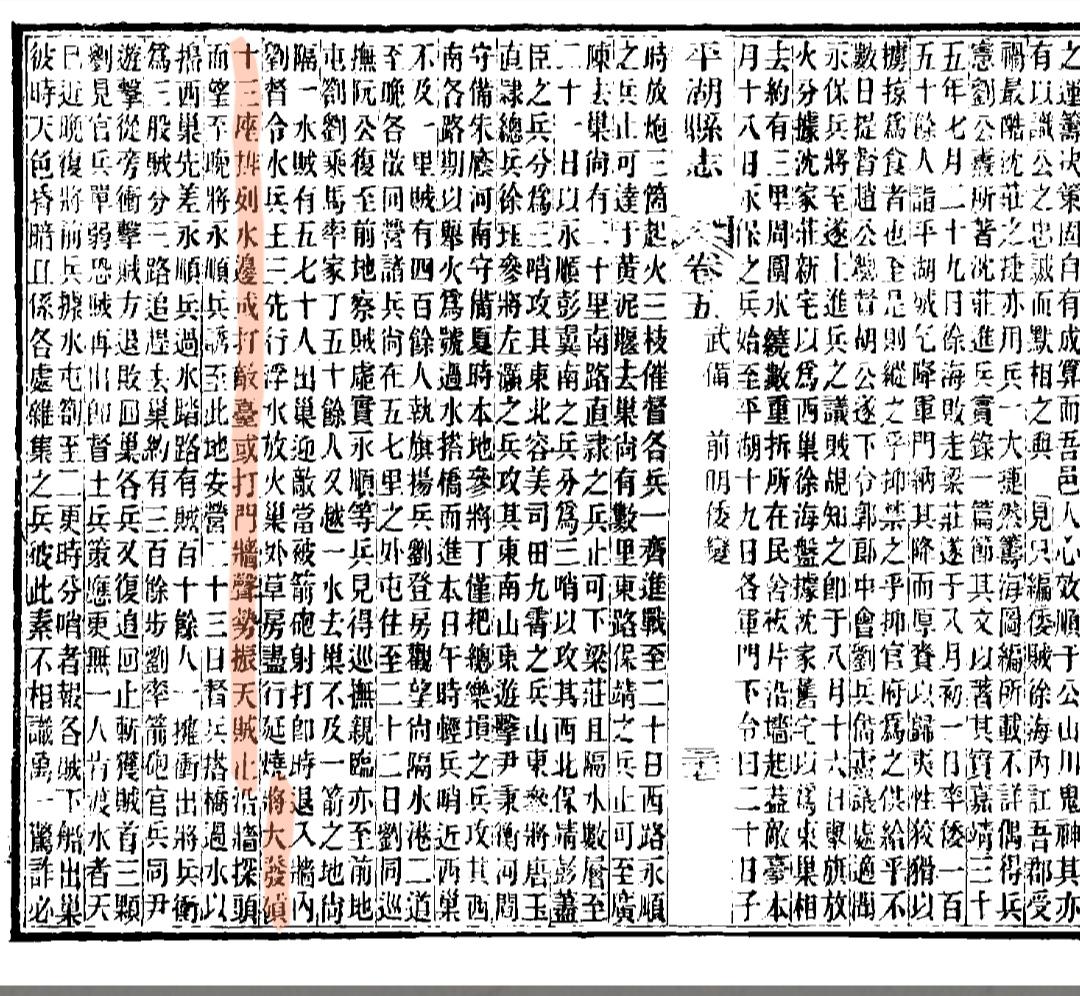 之運籌决策固自有成算而吾邑人心效順于公山川鬼神其亦
有以識公之忠誠而默相之與 見只編倭賊徐海内訌吾郡受
禍最酷沈莊之捷亦用兵一大璉然籌海圖編所載不詳偶得兵
憲劉公燾所著沈莊進兵實錄一篇節其文以著其實嘉靖三十
五年七月二十九日徐海敗走梁莊遂于八月初一日率倭一百
五十餘人詣平湖城乞降軍門納其降而厚賚以歸夷性狡猾以
擄掠爲食者也至是則縱之乎抑禁之乎抑官府爲之供給乎不
數日提督趙公總督胡公遂下令郭郎中會劉兵備燾議處適聞
永保兵將至遂上進兵之議賊覘知之卽于八月十六日擧旗放
火分據沈家莊新宅以爲西巢徐海盤據沈家舊宅以爲東巢相
去約有三里周圍水繞數重拆所在民舍板片沿墻起蓋敵臺本
月十八日永保之兵始至平湖十九日各軍門下令曰二十日子
平湖縣志 卷五 武備 前明倭變 三十七
時放炮三箇起火三枝催督各兵一齊進戰至二十日西路永順
之兵止可達于黃泥堰去巢尙有數里東路保靖之兵止可至廣
陳去巢尙有二十里南路直隷之兵止可下梁莊且隔水數層至
二十一日以永順彭翼南之兵分爲三哨以攻其西北保靖彭藎
臣之兵分爲三哨攻其東北容美司田九霄之兵山東叅將唐玉
直隷總兵徐珏參將左灝之兵攻其東南山東遊擊尹秉衡河間
守備朱麿河南守備夏時本地參將丁僅把總欒塤之兵攻其西
南各路期以舉火爲號過水搭橋而進本日午時輕兵哨近西巢
不及一里賊有四百餘人執旗揚兵劉登房觀望尙隔水港二道
至晚各散回營諸兵尙在五七里之外屯住至二十二日劉同巡
撫阮公復至前地察賊虛實永順等兵見得巡撫親臨亦至前地
屯劄劉乘馬率家丁五十餘人又越一水去巢不及一箭之地尙
隔一水賊有五七十人出巢迎敵當被箭砲射打卽時退入墻内
劉督令水兵王三先行浮水放火巢外草房盡行延燒將大發熕
十三座排列水邊或打敵臺或打門墻聲勢振天賊止沿墻探頭
而望至晚將永順兵誘至此地安營二十三日督兵搭橋過水以
搗西巢先差永順兵過水踏路有賊百十餘人一擁衝出將兵衝
爲三股賊分三路追趕去巢約有三百餘步劉率箭砲官兵同尹
遊擊從旁衝擊賊方退敗回巢各兵又復追回止斬獲賊首三顆
劉見官兵單弱恐賊再出卽督土兵策應更無一人肯渡水者天
已近晚復將前兵據水屯劄至二更時分哨者報各賊下船出巢
彼時天色昏暗且係各處雜集之兵彼此素不相識萬一驚詐必